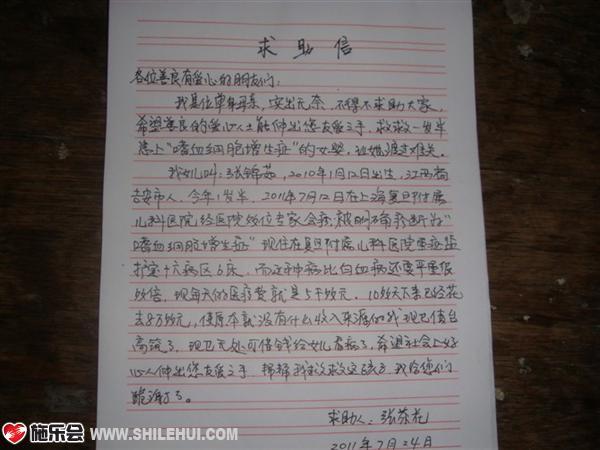 求助信
各位善良有爱心的朋友们:
我是位单身母亲,实出无奈,不得不求助大家,
希望善良的爱心人士能伸出您友爱之手,救救一岁半
患上“嗜血细胞增生症”的女婴,让她渡过难关。
我女儿叫:张锦茹,2010年1月12日出生,江西省
吉安市人,今年1岁半,2011年7月12日在上海复旦附属
儿科医院经医院数位专家会病被明确诊断为“
嗜血细胞增生症”现住在复旦附属儿科医院重症监
护室十六病区6床,而这种病比白血病还要严重很
数倍,现每天的医疗费就是5千数元,10数天下来已经花
去8万数元,使原本就没有什么收入来源的我现已债台
高筑了,现已无处可借钱给女儿看病了,希望社会上好
心人伸出您友爱之手,帮帮我救救宝孩子,我给你们
跪谢了。
求助人:张芬花
2011年7月24日
施乐会 WWW.SHILEHUI.COM